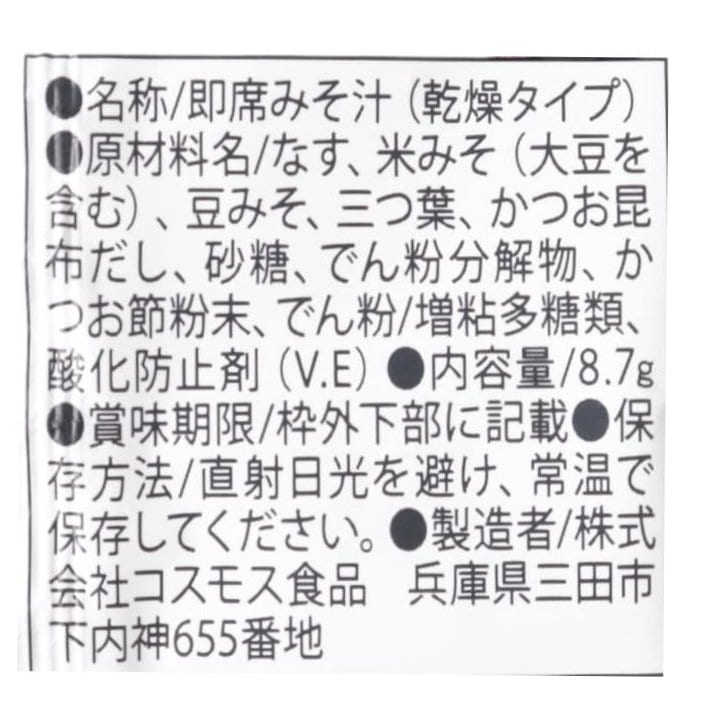 ●名称/即席みそ汁（乾燥タイプ）
●原材料名/なす、米みそ（大豆を
含む）、豆みそ、三つ葉、かつお昆
布だし、砂糖、でん粉分解物、か
つお節粉末、でん粉/増粘多糖類、
酸化防止剤（V.E）●内容量/8.7g
●賞味期限/枠外下部に記載●保
存方法/直射日光を避け、常温で
保存してください。●製造者/株式
会社コスモス食品　兵庫県三田市
下内神655番地